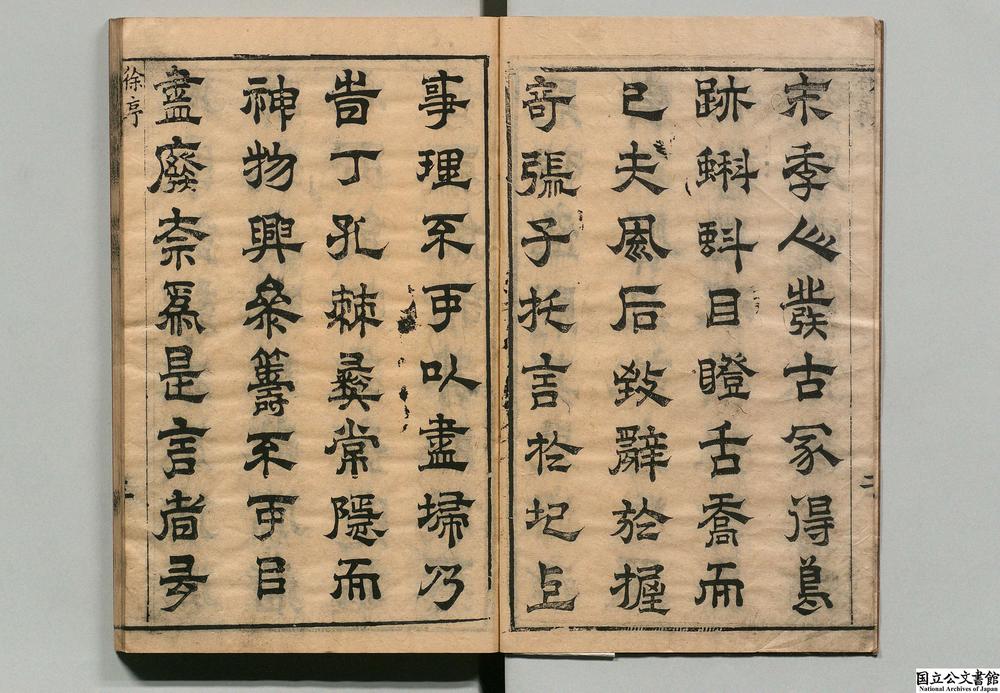 宋季人發古冢得鳥
跡蝌蚪目瞪舌喬而
已夫風后致辭於握
奇張子托言於圯上
事理不可以盡掃乃
旹丁孔棘彝常隱而
神物興參籌不可㠯
盡廢柰爲是言者
徐
国立公文書館
National Archives of Japan